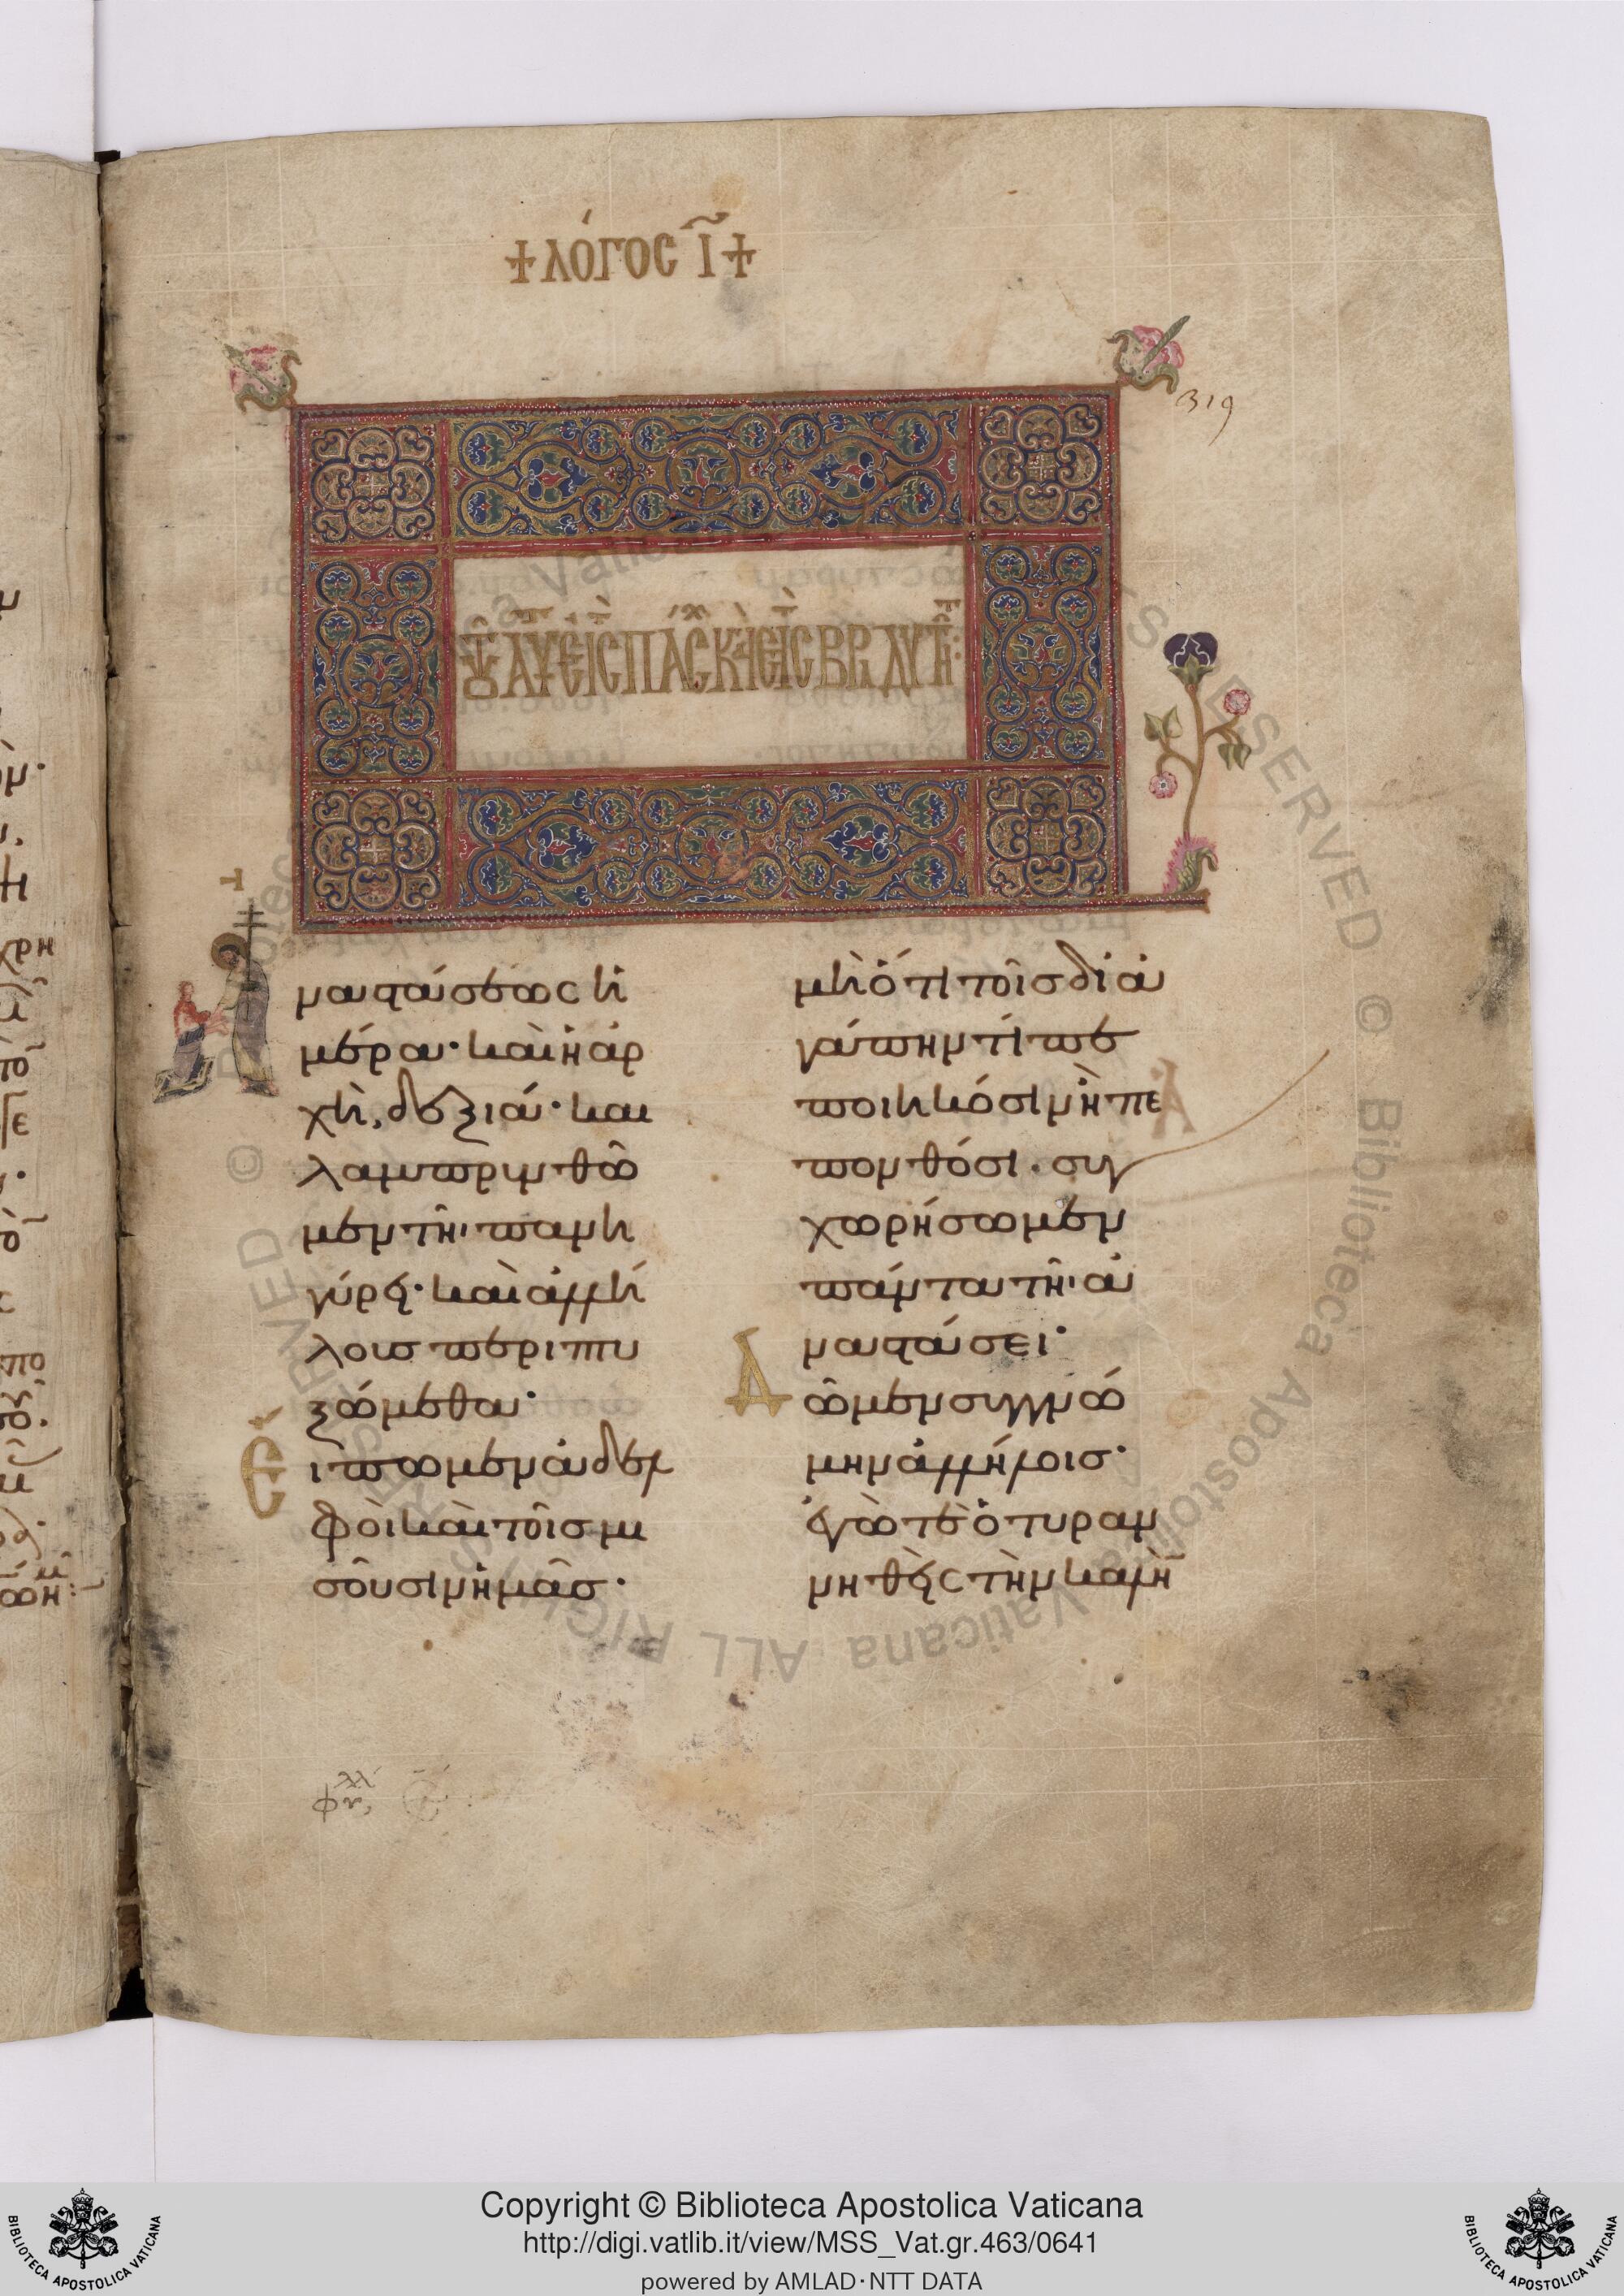 + ΛΌΓΟC Ῑ +
319
ΤΟΥ ΑΥΤ ΕΙC Τ ΠΑCΧ Κ ΕΙC Τ ΒΡΑΔΥΤΗΤ:
ναστάσεως ἡ
μέρα· καὶ ἡ ἀρ
χὴ, δεξιά· και
λαμπρυνθῶ
μεν τῆι πανη
γύρει· καὶ ἀλλή
λους περιπτυ
ξώμεθα·
Εἴ
ιπωμεν ἀδελ
φοὶ καὶ τοῖς μι
σοῦσιν ἡμᾶς·
μὴ ὅτι τοῖς δι ἀ
γάπην τί πε
ποιηκόσιν ἢ πε
πονθόσι. συγ
χωρήσωμεν
πάντα τῆι ἀ
ναστάσει·
Δ
ῶμεν συγγνώ
μην ἀλλήλοις·
ἐγώ τε ὁ τυραν
νηθεὶς τὴν καλὴν
Copyright © Biblioteca Apostolica Vaticana
http://digi.vatlib.it/view/MSS_Vat.gr.463/0641
powered by AMLAD·NTT DATA
BIBLIOTECA APOSTOLICA VATICANA
BIBLIOTECA APOSTOLICA VATICANA